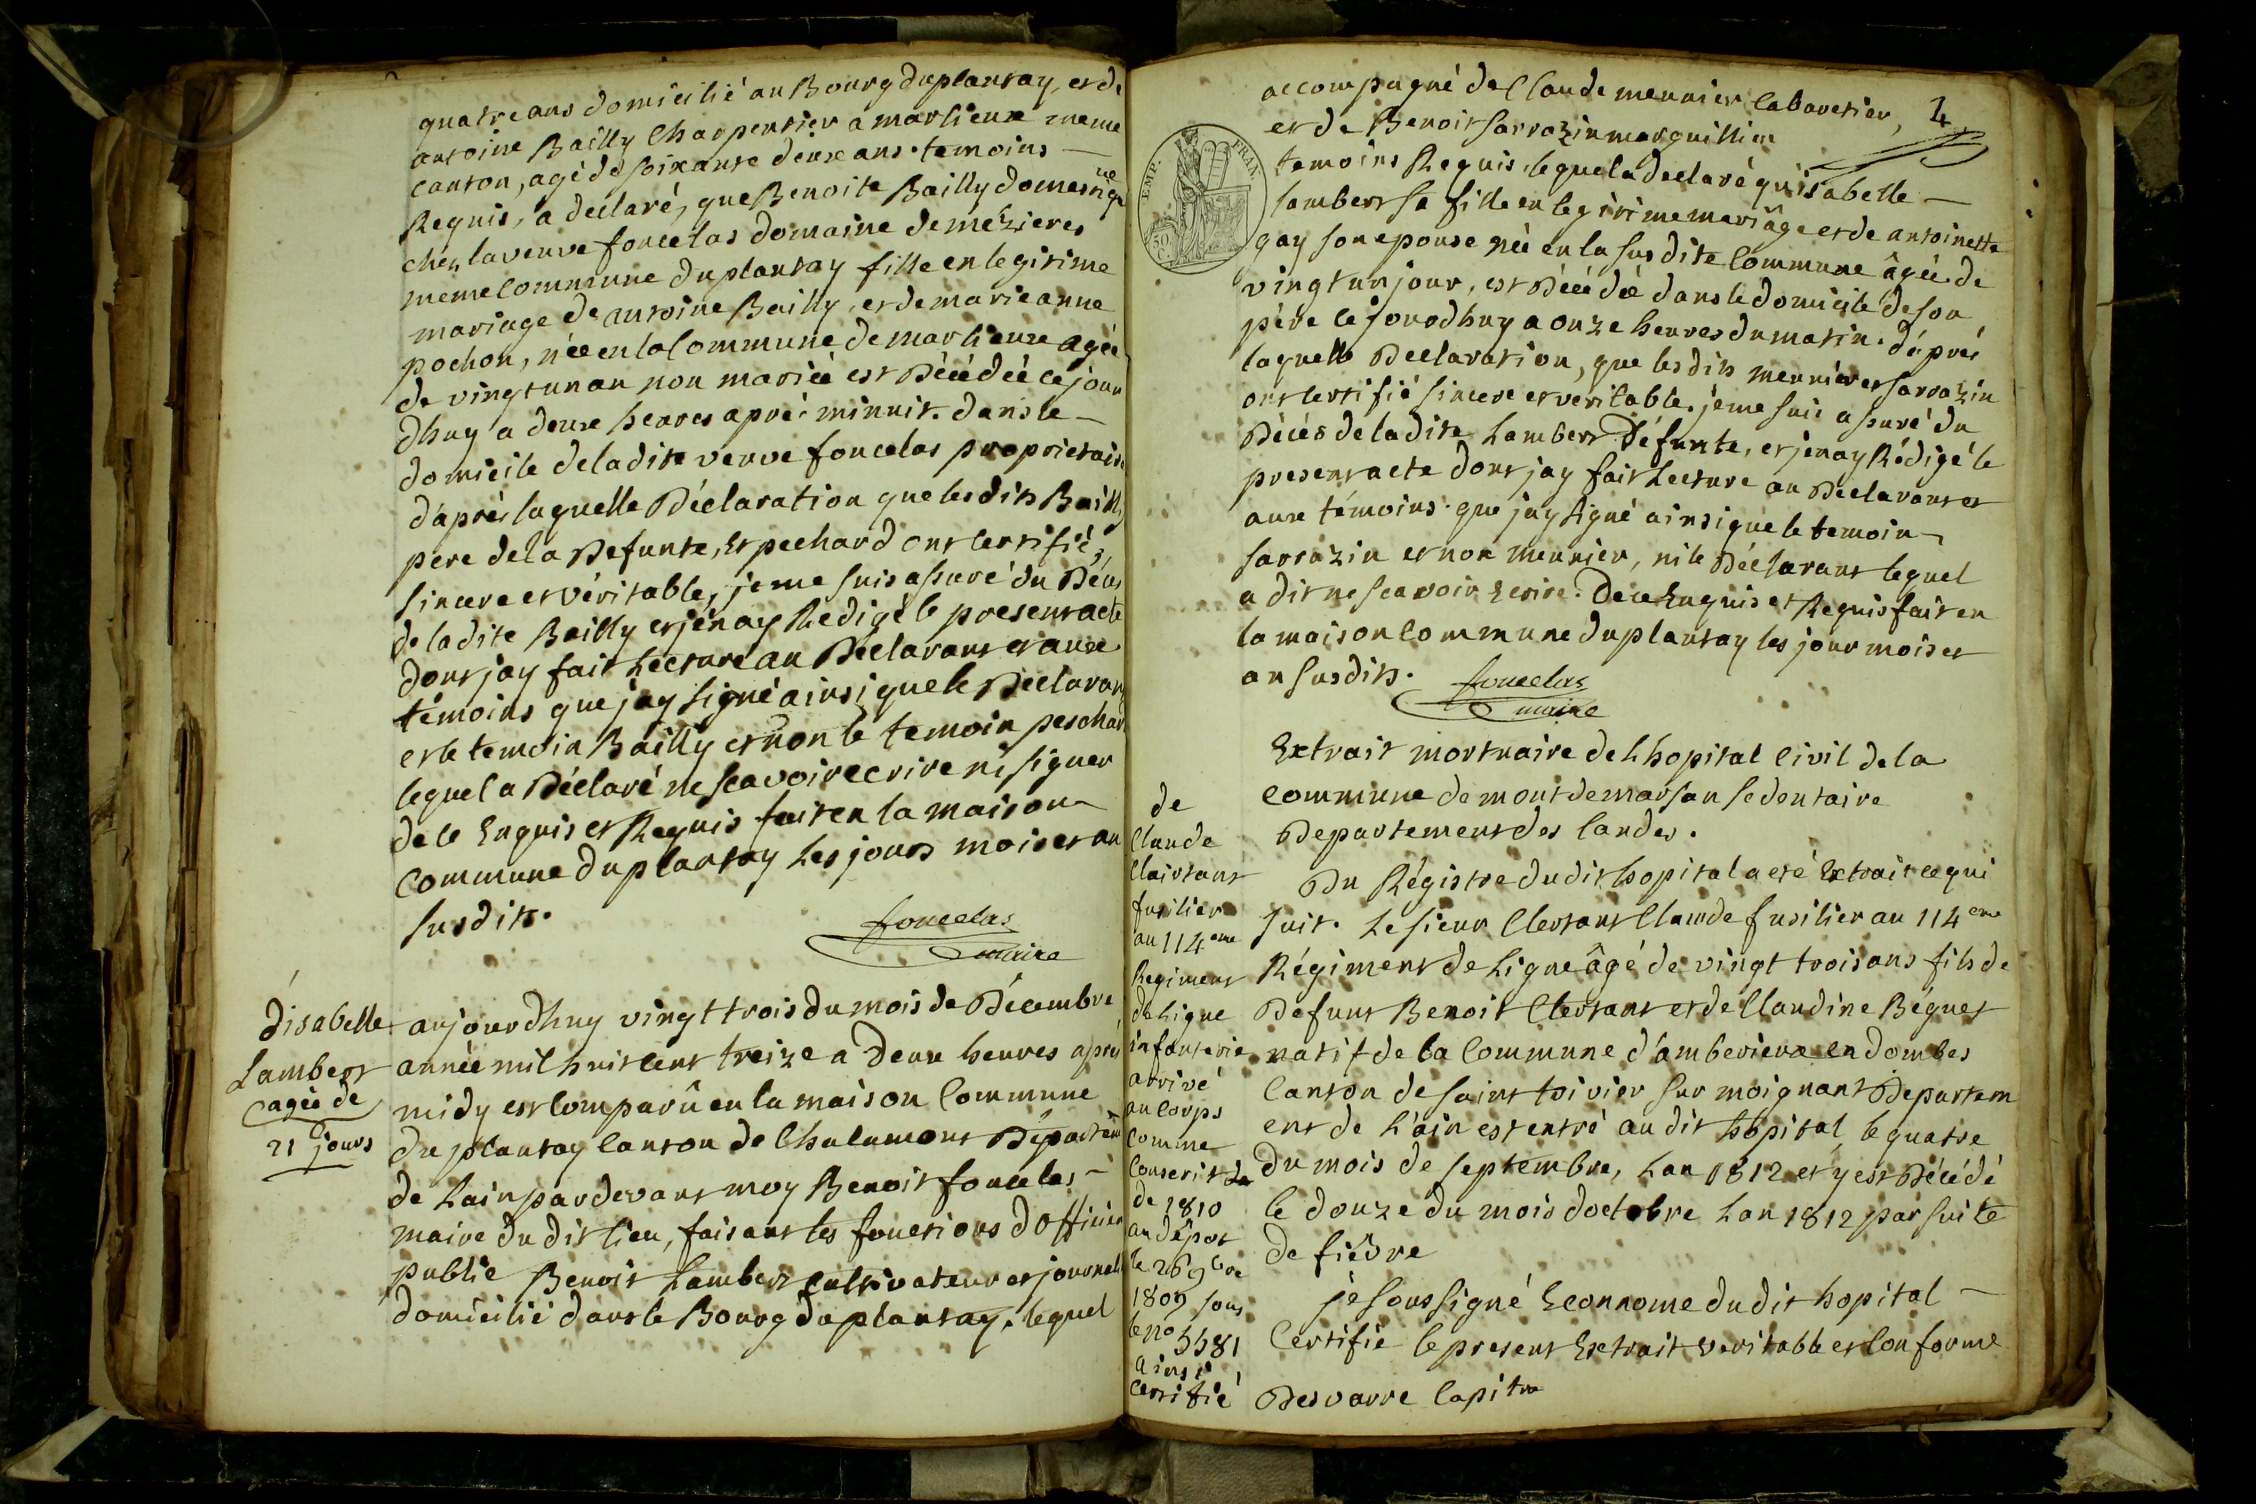 quatre ans domicilié au Bourg duplantay, et de
antoine Bailly Charpentier a marlieux meme
canton, agé de soixante deux ans. temoins —
Requis, a déclaré, que Benoite Bailly domestique
chez la veuve foncelas domaine de mézieres
meme commune duplantay fille en legitime
mariage de antoine Bailly, et de marie anne
pochon, née en la Commune de marlieux agée
de vingt un an non mariée est Décédée ce jour
dhuy a deux heures après minuit. dans le —
domicile de ladite veuve foncelas proprietaire
d'après laquelle Déclaration que lesdits Bailly
pere de la Defunte, Et pechard ont Certifié,
sincere et véritable, je me suis assuré du Déces
de ladite Bailly et jen ay Redigé le present acte
dont jay fait Lecture au Déclarant et aux
témoins que jay signé ainsi que le Déclarant
et le temoin Bailly et non le temoin peschard
lequel a Déclaré ne scavoir ecrire ni signer
de ce Enquis et Requis fait en la maison
Commune duplantay Les jours mois et an
susdits.
foncelas
maire
d'isabelle
Lambert
agée de
21 jours
aujourdhuy vingt trois du mois de Décembre
année mil huit cent treize a deux heures après
midy est Comparû en la maison Commune
du plantay Canton de Chalamont Départem
de Lain pardevant moy Benoit foncelas —
maire du dit lieu, faisant les fonctions d'officier
public Benoit Lambert Cultivateur et journalie
domicilié dans le Bourg duplantay, lequel
4
accompagné de Claude meunier Cabaretier,
et de Benoit sarrazin marguillier
temoins Requis, lequel a declaré qu'isabelle —
lambert sa fille en legitime mariâge et de antoinette
gay son epouse née en la susdite Commune âgée de
vingt un jour, est Décédée dans le domicile de son
père ce jourdhuy a onze heures du matin. d'après
laquelle Declaration, que lesdits meunier et sarrazin
ont certifié sincere et veritable. je me suis assuré du
Décès de ladite Lambert Défunte, et jen ay Rédigé le
present acte dont jay fait Lecture au Déclarant et
aux témoins. que jay signé ainsi que le temoin
sarrazin et non meunier, ni le Déclarant lequel
a dit ne scavoir Ecrire. De ce Enquis et Requis fait en
la maison Commune duplantay les jour mois et
an susdits.
foncelas
maire
EMP. FRAN.
50 C.
Extrait mortuaire de Lhopital Civil de la
commune de mont de marsan sedentaire
Departement des landes.
Du Régistre dudit hopital a eté Extrait ce qui
suit. Le sieur Clertant Claude fusilier au 114eme
Régiment de Ligne âgé de vingt trois ans fils de
Defunt Benoit Clertant et de Claudine Béguet
natif de la Commune d'amberieux en dombes
Canton de saint trivier sur moignant Departem
ent de L'ain est entré au dit hôpital le quatre
du mois de septembre, Lan 1812 et y est Décédé
le douze du mois doctobre Lan 1812 par suite
de fiévre
jé soussigné Econnome du dit hopital —
Certifie le present Extrait veritable et Conforme
Desvarre Capitne
de
Claude
Clairtant
fusilier
au 114eme
Regiment
de Ligne
infanterie
arrivé
au Corps
Comme
Conscrit de
de 1810
au dépot
le 26 9bre
1809 sous
le no 5581
ainsi
certifié